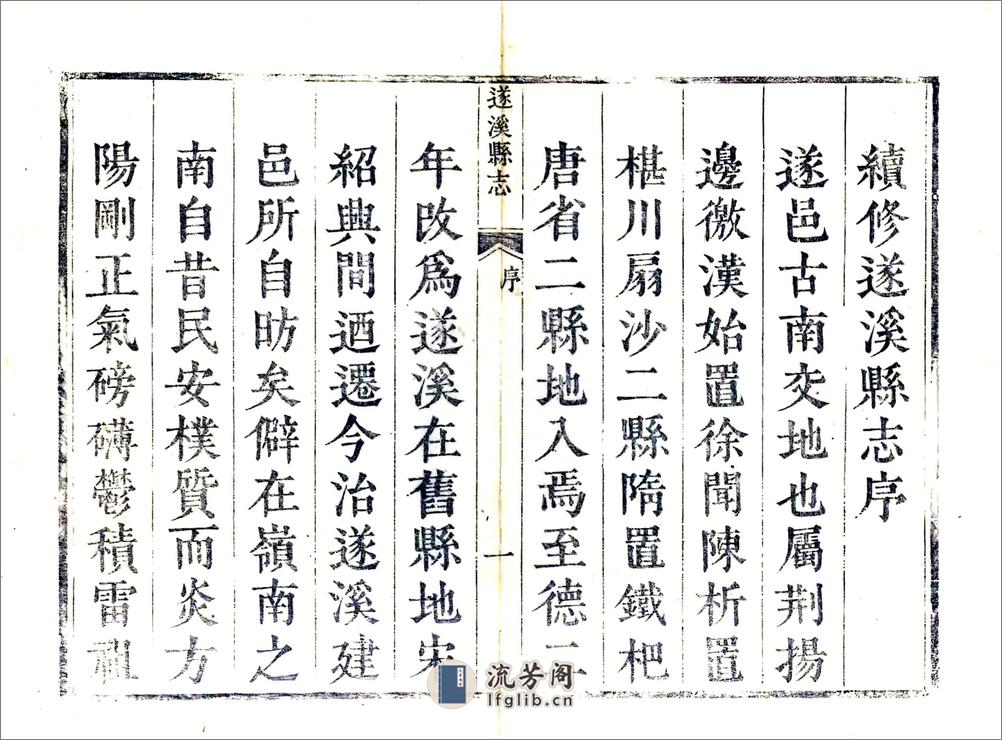 續修遂溪縣志序
遂邑古南交地也屬荆揚
邊徼漢始置徐聞陳析置
椹川扇沙二縣隋置鐵杷
唐省二縣地入焉至德二
遂溪縣志
序
一
年改爲遂溪在舊縣地宋
紹興間迺遷今治遂溪建
邑所自昉矣僻在嶺南之
南自昔民安樸質而炎方
陽剛正氣磅礴鬱積雷祖
流芳阁
lfglib.cn